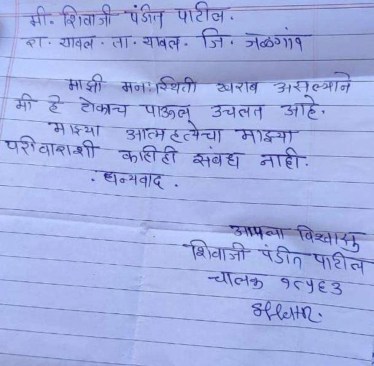 मी. शिवाजी पंडीत पाटील.
रा. यावल. ता. यावल. जि. जळगांव
माझी मनःस्थिती खराब असल्याने
मी हे टोकाच पाऊल उचलत आहे.
माझ्या आत्महत्येचा माझ्या
परीवाराशी काहीही संबंध नाही.
धन्यवाद.
आपला विश्वासु
शिवाजी पंडीत पाटील
चालक १८५६३